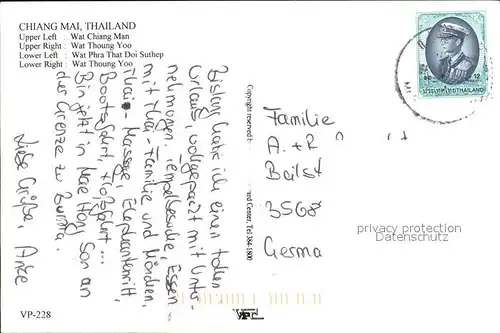 CHIANG MAI, THAILAND
Upper Left : Wat Chiang Man
Upper Right : Wat Thoung Yoo
Lower Left : Wat Phra That Doi Suthep
Lower Right : Wat Thoung Yoo
Bislang hatte ich einen tollen
Urlaub, vollgepackt mit Unter-
nehmungen: Tempelbesuche, Essen
mit Thai-Familie und Mönchen,
Thai-Massage, Elephantenritt,
Bootsfahrt, Floßfahrt...
Bin jetzt in Mae Hong Son an
der Grenze zu Burma.
Liebe Grüße, Anke
Copyright reserved
Card Center, Tel 384-1800
12
ประเทศไทย THAILAND
Familie
A. + R
3568
Germa
privacy protection
Datenschutz
VP-228